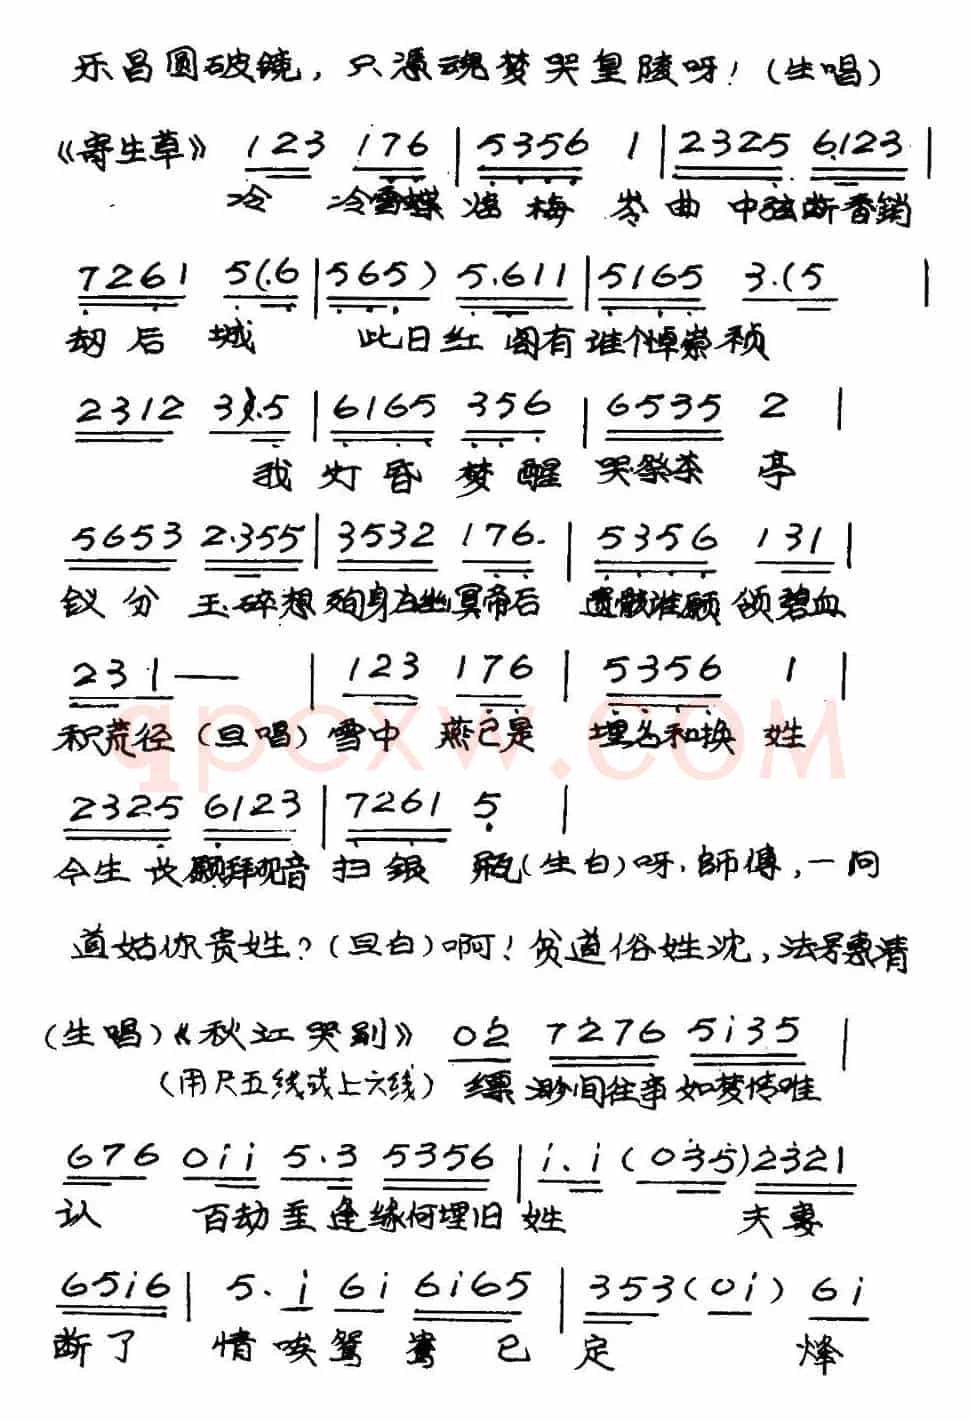 乐昌圆破镜，只凭魂梦哭皇陵呀！(生唱)
《寄生草》 123 176 | 5356 1 | 2325 6.123 |
冷 冷雪蝶 梅 岑曲 中弦断香销
7261 5(.6 | 565) 5.611 | 5165 3.(5 |
劫后城 此日红阁有谁个悼崇祯
2312 3).5 | 6165 356 | 6535 2 |
我灯昏梦醒哭祭茶亭
5653 2.355 | 3532 176. | 5356 131 |
钗分玉碎想殉身在幽冥帝后遗骸谁愿领碧血
231— | 123 176 | 5356 1 |
积荒径(旦唱)雪中燕已是埋名和换姓
2325 6123 | 7261 5 |
今生长愿拜观音扫银瓶(生白)呀.師傅，一问
道姑你贵姓？(旦白)啊！贫道俗姓沈，法号惠清
(生唱)《秋江哭别》 02 7276 5i35 |
(用尺五线或上六线) 缥渺间往事如梦情难
676 0ii 5.3 5356 | i.i (035) 2321
认 百劫重逢缘何埋旧姓 夫妻
65i6 | 5.i 6i 6i65 | 353(0i) 6i
断了 情唉鸳鸯已定 烽
qpcxw.com